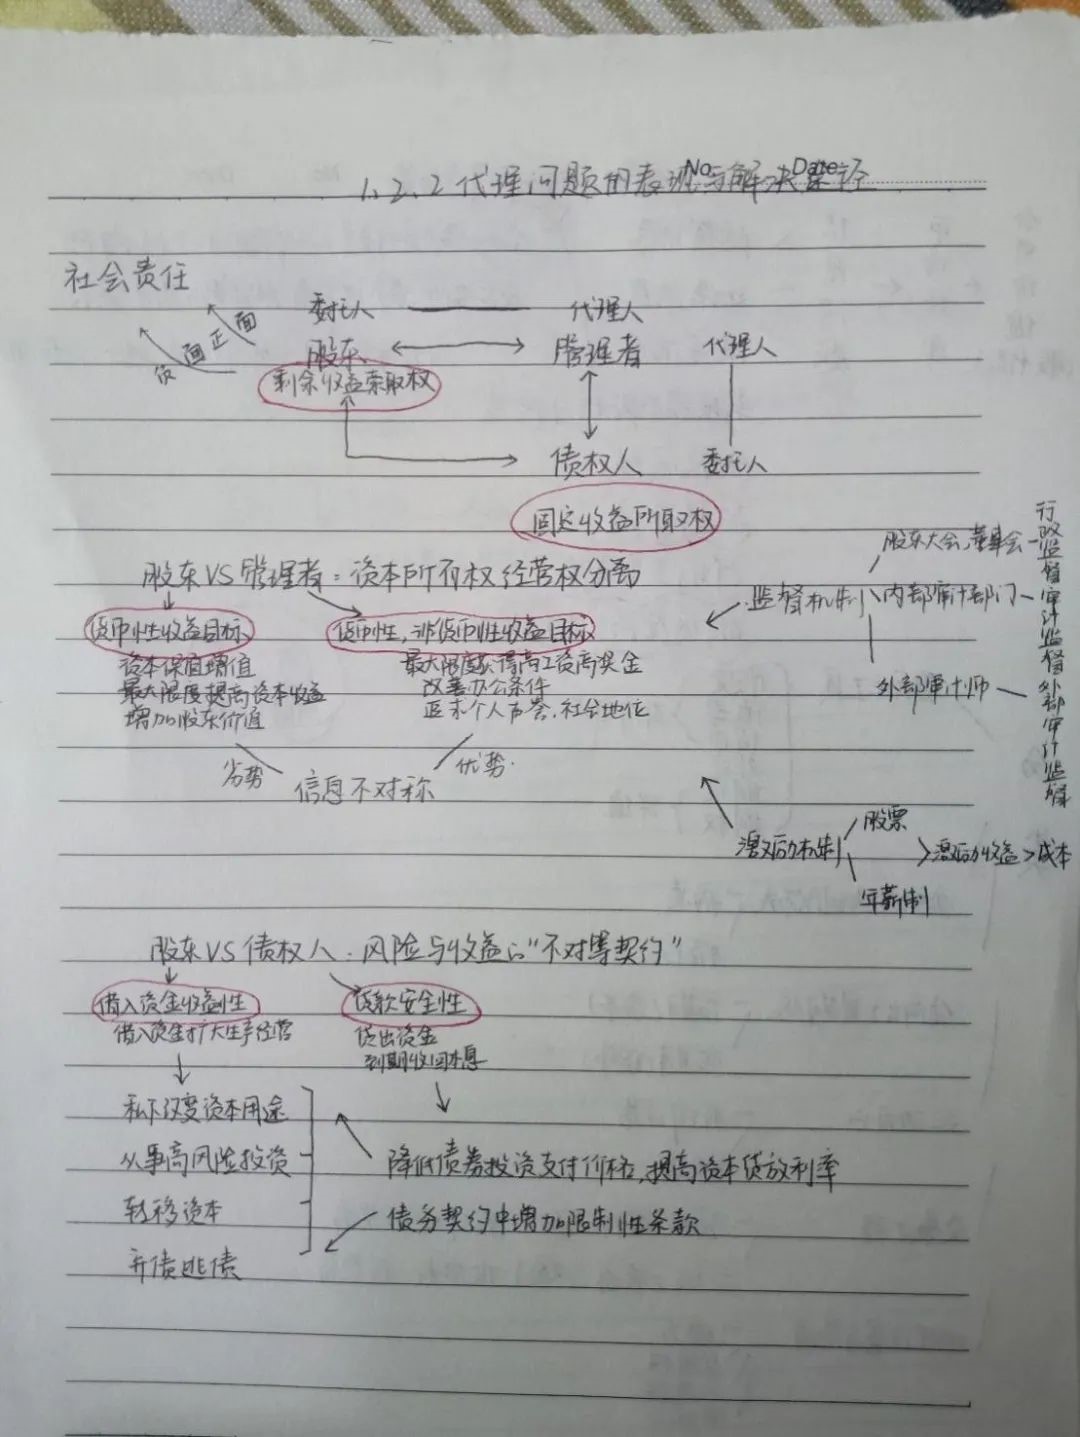 No
Date
1.2.2 代理问题的表现与解决途径
社会责任
负面 正面
委托人 代理人
股东 管理者 代理人
剩余收益索取权
债权人 委托人
固定收益所取权
股东VS管理者：资本所有权经营权分离
货币性收益目标 货币性,非货币性收益目标
资本保值增值 最大限度获得高工资高奖金
最大限度提高资本收益 改善办公条件
增加股东价值 追求个人声誉,社会地位
劣势 信息不对称 优势
监督机制
股东大会,董事会
内部审计部门
外部审计师
行政监督审计监督外部审计监督
激励机制
股票
年薪制
激励收益>成本
股东VS债权人.风险与收益的“不对等契约”
借入资金收益性 贷款安全性
借入资金扩大生产经营 贷出资金
到期收回本息
私下改变资本用途
从事高风险投资 降低债券投资支付价格,提高资本贷放利率
转移资本 债务契约中增加限制性条款
弃债逃债